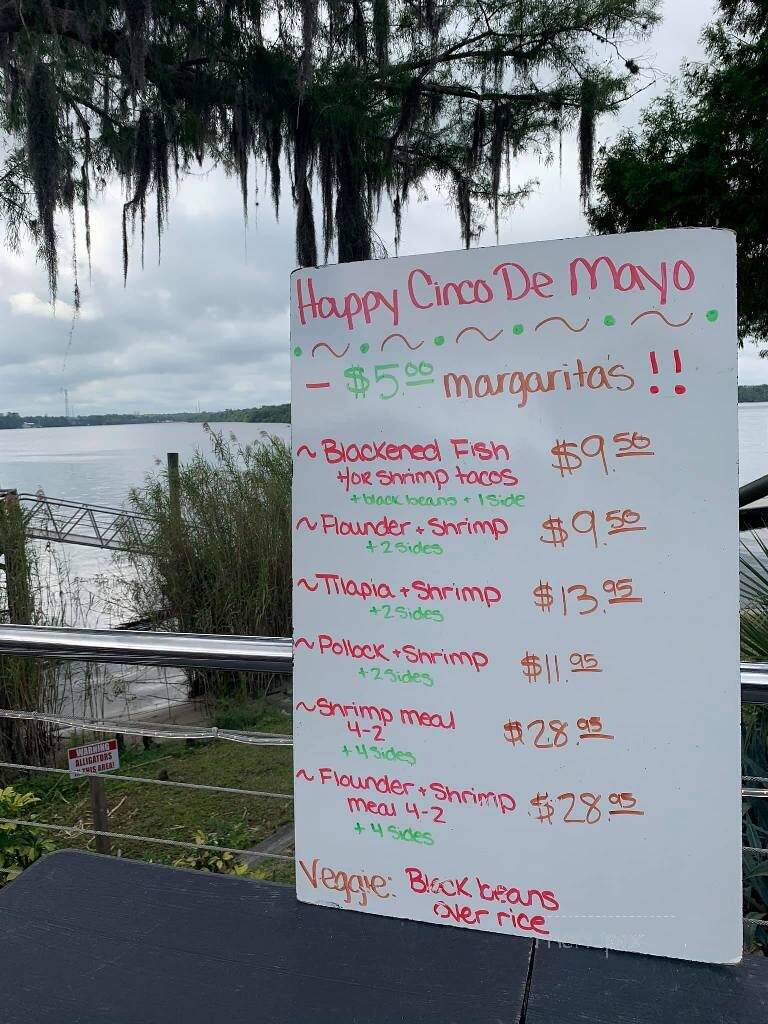 Happy Cinco De Mayo
- $5.00 margarita's !!
~ Blackened Fish $9.50
+/or shrimp tacos
+ black beans + 1 side
~ Flounder + Shrimp $9.50
+ 2 sides
~ Tilapia + Shrimp $13.95
+ 2 sides
~ Pollock + Shrimp $11.95
+ 2 sides
~ Shrimp meal $28.95
4-2
+ 4 sides
~ Flounder + Shrimp $28.95
meal 4-2
+ 4 sides
Veggie: Black beans
over rice
WARNING
ALLIGATORS
IN THIS AREA!